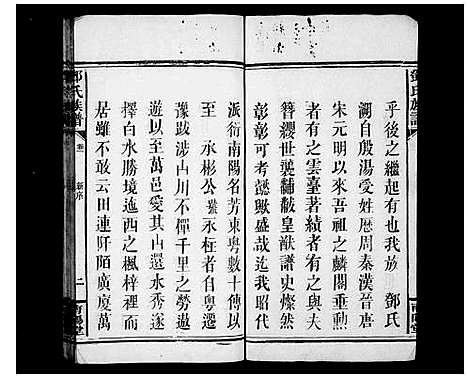 鄧氏族譜
乎後之繼起有也我族 鄧氏
溯自殷湯受姓歷周秦漢晉唐
宋元明以來吾祖之麟閣垂勳
者有之雲臺著績者有之與夫
簪纓世襲黼黻皇猷譜史燦然
彰彰可考懿歟盛哉迄我昭代
派衍南陽名芳東粵數十傳以
至 永彬公暨永柱者自粵遷
豫跋涉山川不憚千里之勞遨
遊以至萬邑愛其山還水秀遂
擇白水勝境迤西之楓梓裡而
居雖不敢云田連阡陌廣廈萬
鄧氏族譜
卷 新序
二
南陽堂